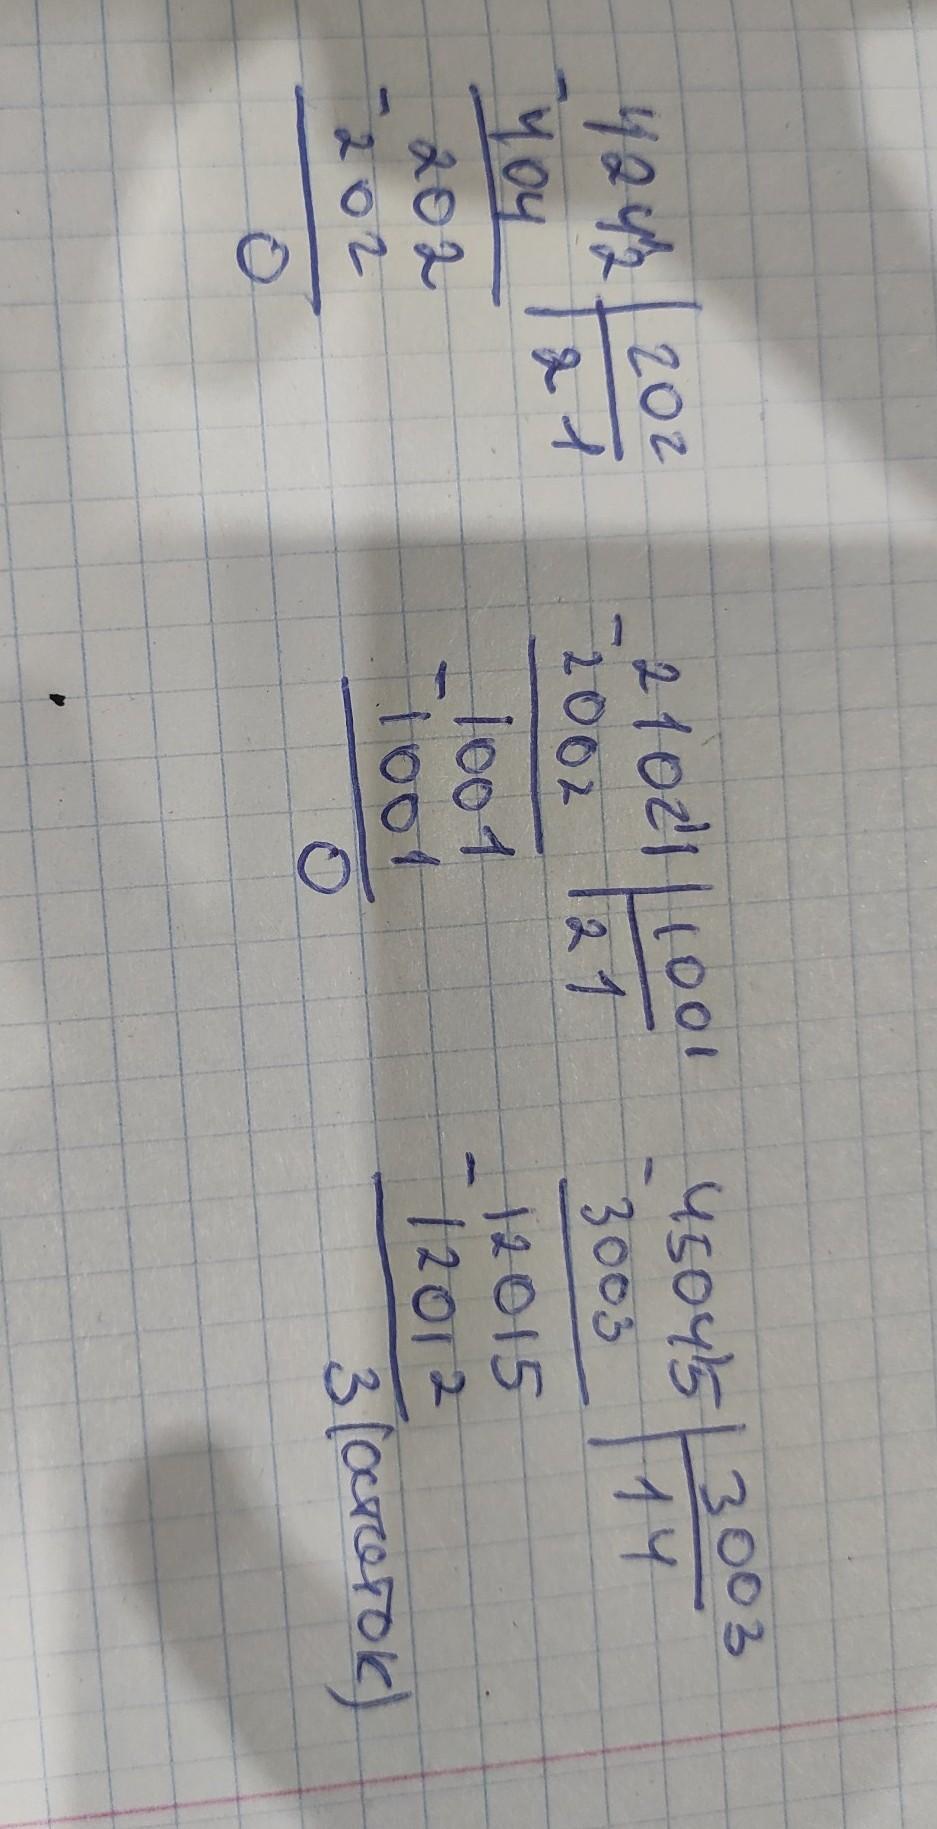 4242 | 202
- 404 | 21
202
- 202
0
- 21021 | 1001
2002 | 21
- 1001
1001
0
- 45045 | 3003
3003 | 14
- 12015
12012
3 (остаток)